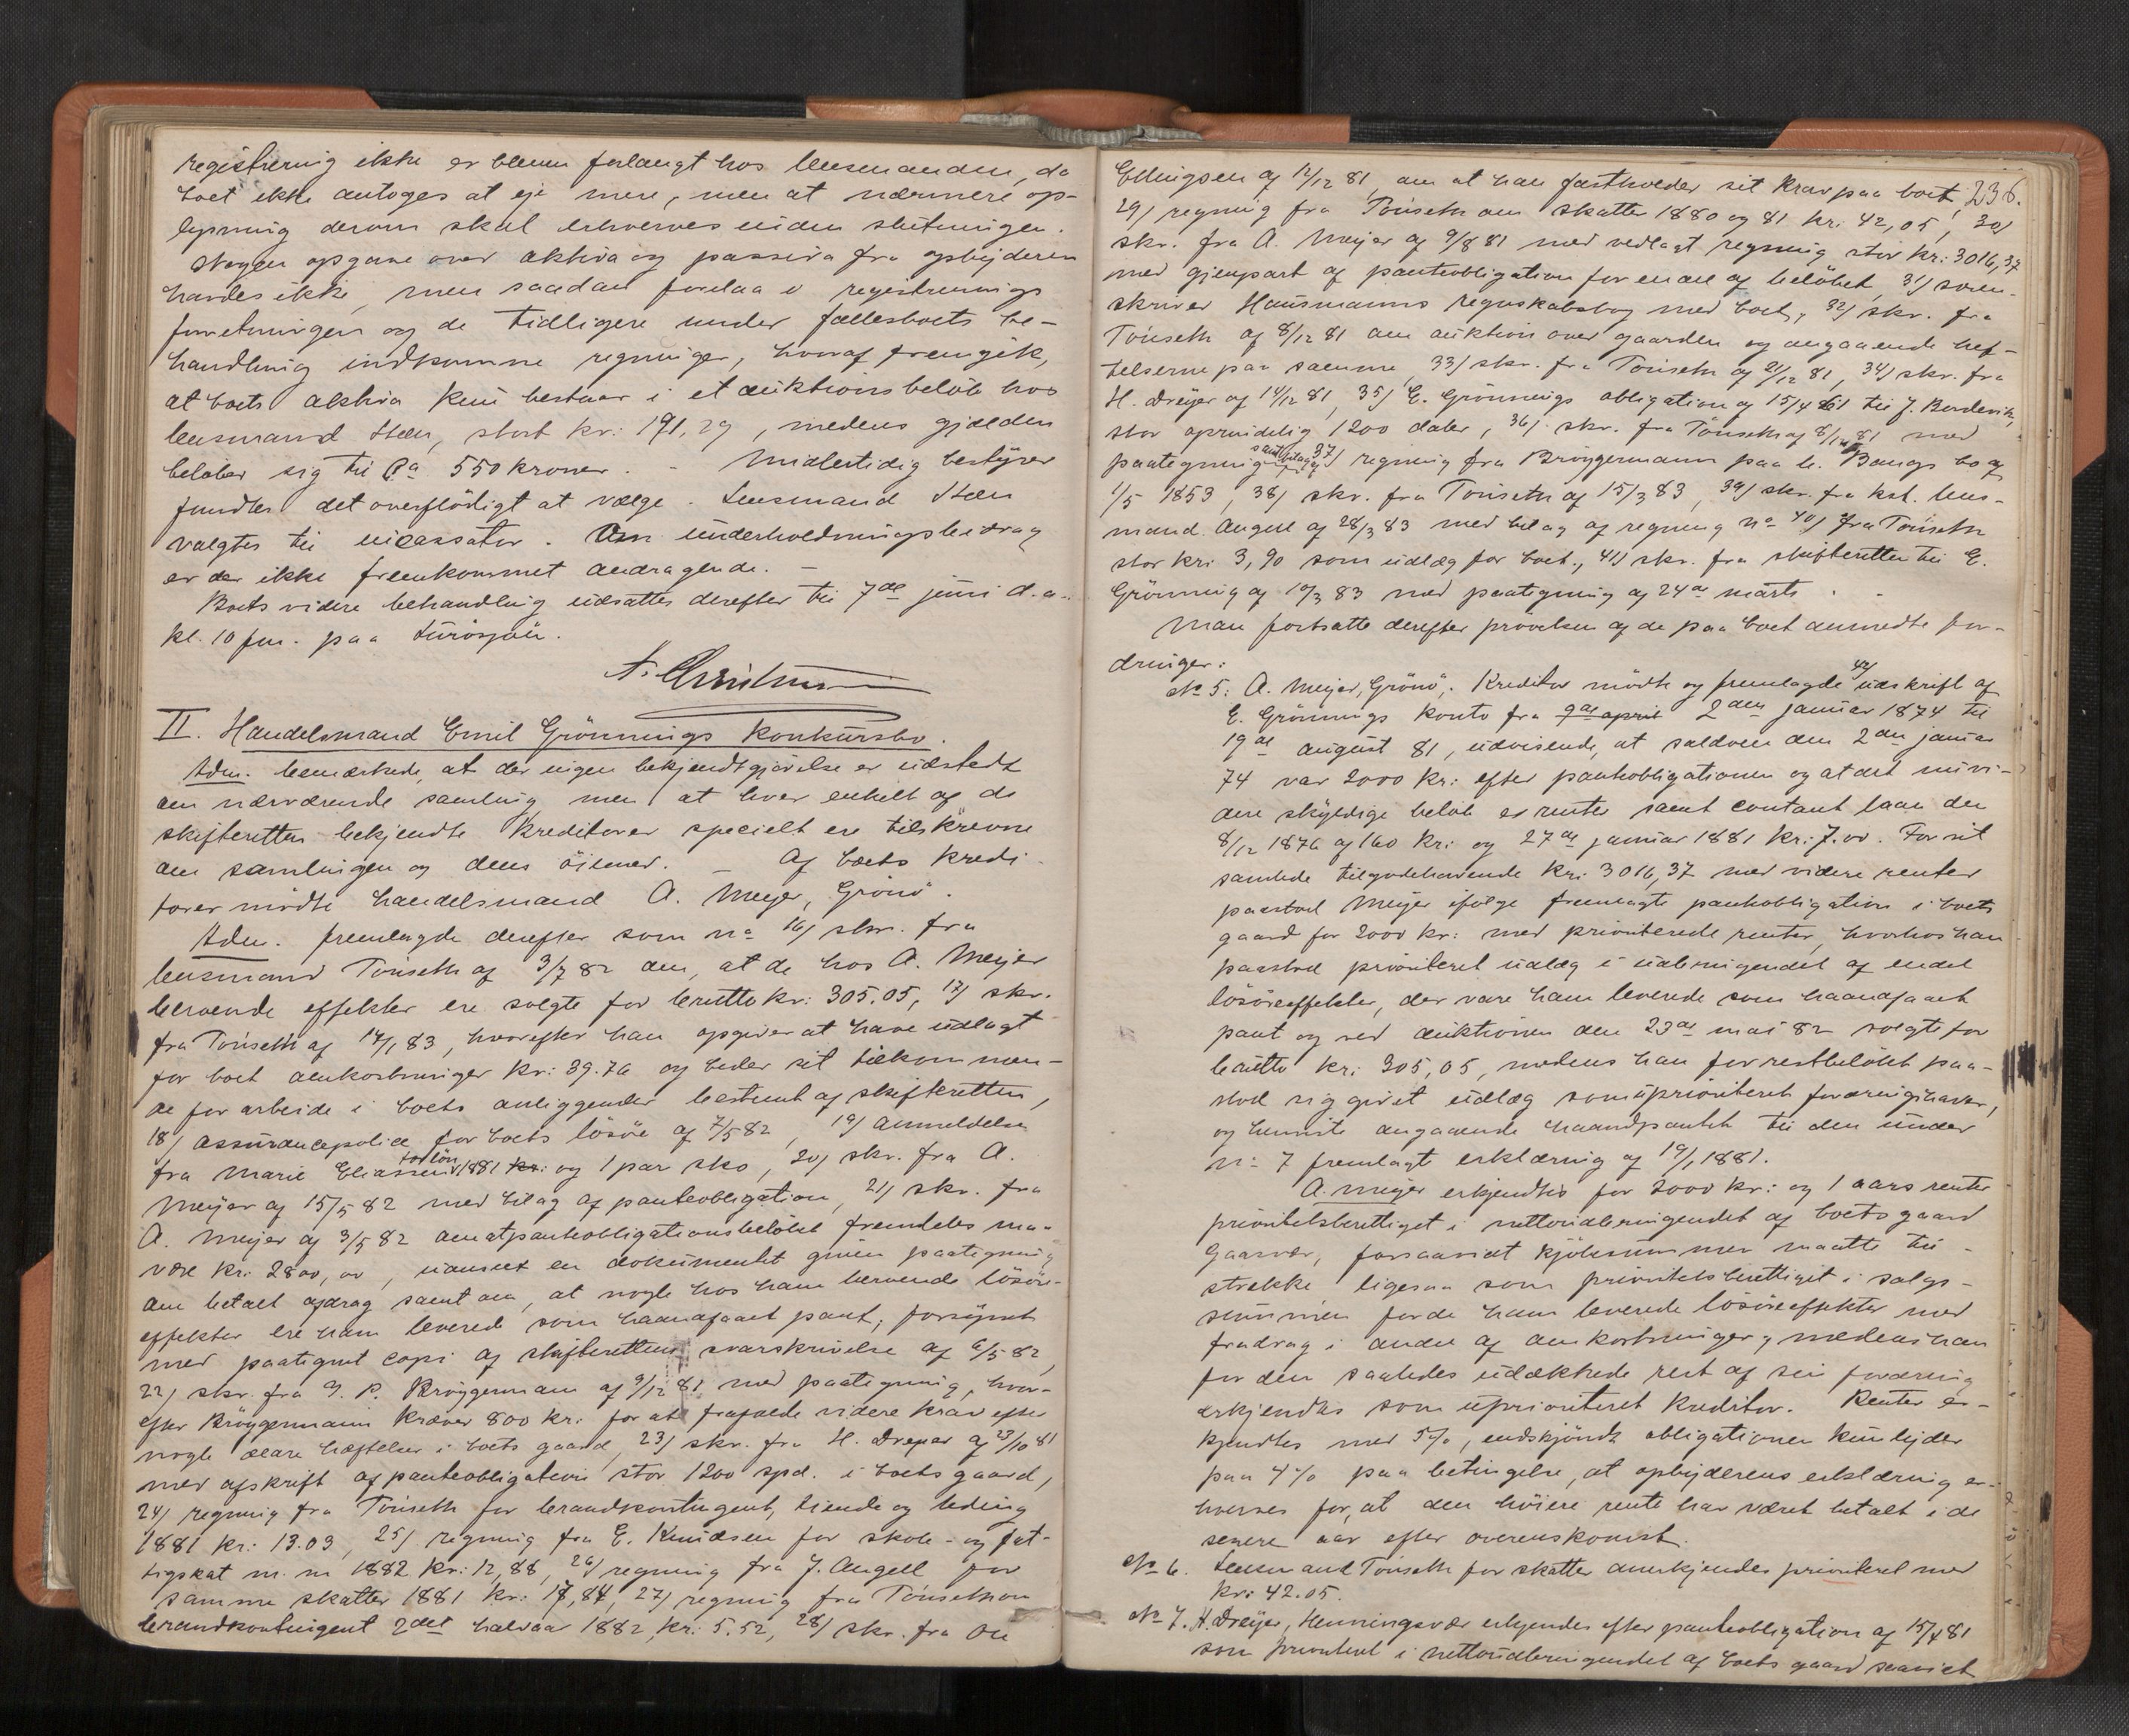 registrering ikke er bleven forlangt hos lensmanden, da
boet ikke antoges at eje mere, men at nærmere op-
lysning derom skal erhverves inden slutningen.
Nogen opgave over aktiva og passiva fra opbyderen
havdes ikke, men saadan forelaa i registrerings
forretningen og de tidligere under fællesboets be-
handling indkomne regninger, hvoraf fremgik,
at boets aktiva kun bestaar i et auktionsbeløb hos
lensmand Steen, stort kr: 191,29, medens gjælden
beløber sig til Ca 550 kroner. - Midlertidig bestyrer
fandtes det overflødigt at vælge. Lensmand Steen
valgtes til incassator. Om underholdningsbidrag
er der ikke fremkommet andragende. -
Boets videre behandling udsattes derefter til 7de juni d.a.
kl. 10 fm. paa
II. Handelsmand Emil Grønnings Konkursbo.
Adm. bemærkede, at der ingen bekjendtgjørelse er udstedt
om nærværende samling men at hver enkelt af de
skifteretten bekjendte Kreditorer specielt ere tilskrevne
om samlingen og dens øiemed. - Af boets Kredi-
torer mødte handelsmand A. Meyer, Grønø.
Adm. fremlagde derefter som no 16/ skr. fra
lensmand Tönseth af 3/7 82 om, at de hos A. Meyer
beroende effekter ere solgte for brutto kr: 305.05, 17/ skr.
fra Tönseth af 14/1 83, hvorefter han opgiver at have udlagt
for boet omkostninger kr: 39.76 og beder sit tilkommen-
de for arbeide i boets anliggender bestemt af skifteretten,
18/ Assurancepolice for boets løsøre af 7/5 82, 19/ Anmeldelse
fra Marie Eliassen for løn 1881 kr: og 1 par sko, 20/ skr. fra A.
Meyer af 15/5 82 med bilag af panteobligation, 21/ skr. fra
A. Meyer af 3/5 82 om at panteobligationsbeløbet fremdeles maa
være kr: 2800,00, uanseet en dokumentet given paategning
om betalt afdrag samt om, at nogle hos ham beroende løsøre-
effekter ere ham leverede som haandfaaet pant, forsynet
med paategnet copi af skifterettens svarskrivelse af 6/5 82,
22/ skr. fra J. P. Brøggermann af 9/12 81 med paategning, hvor-
efter Brøggermann kræver 800 kr: for at frafalde videre krav efter
nogle ældre hæftelser i boets gaard, 23/ skr. fra H. Dreyer af 23/10 81
med afskrift af panteobligation stor 1200 spd. i boets gaard,
24/ regning fra Tönseth for brandkontingent, tiende og leding
1881 kr: 13.03, 25/ regning fra E. Knudsen for skole- og fat-
tigskat m. m 1882 kr: 12,88, 26/ regning fra J. Angell for
samme skatter 1881 kr: 17,84, 27/ regning fra Tönseth om
brandkontingent 2det halvaar 1882, kr: 5.52, 28/ skr. fra Ole
236.
Ellingsen af 12/12 81, om at han fastholder sit krav paa boet,
29/ regning fra Tönseth om skatter 1880 og 81 kr: 42,05, 30/
skr. fra A. Meyer af 9/8 81 med vedlagt regning stor kr: 3016,37
med gjenpart af panteobligation for en del af beløbet, 31/ soren-
skriver Hausmanns regnskabsbog med boet, 32/ skr. fra
Tönseth af 8/12 81 om auktion over gaarden og angaaende hef-
telserne paa samme, 33/ skr. fra Tönseth af 21/12 81, 34/ skr. fra
H. Dreyer af 14/12 81, 35/ E. Grønnings obligation af 15/4 61 til J.
stor oprindelig 1200 daler, 36/ skr. fra Tönseth af 8/12 81 med
paategning samt bilag af 37/ regning fra Brøggermann paa H. Bangs bo af
1/5 1853, 38/ skr. fra Tönseth af 15/3 83, 39/ skr. fra kst. lens-
mand Angell af 28/3 83 med bilag af regning no 40/ fra Tönseth
stor kr: 3,90 som udlæg for boet, 41/ skr. fra skifteretten til E.
Grønning af 10/3 83 med paategning af 24de marts.
Man fortsatte derefter prøvelsen af de paa boet anmeldte for-
dringer:
No 5: A. Meyer, Grønø. Kreditor mødte og fremlagde 42/ udskrift af
E. Grønnings konto fra 9de april 2den januar 1874 til
19de august 81, udvisende, at saldoen den 2den januar
74 var 2000 kr: efter panteobligationen og at det nuvæ-
rende skyldige beløb er renter samt contant laan den
8/12 1876 af 160 kr: og 27de januar 1881 kr: 7.00. For sit
samlede tilgodehavende kr: 3016,37 med videre renter
paastod Meyer ifølge fremlagte panteobligation i boets
gaard for 2000 kr: med prioriterede renter, hvorhos han
paastod prioriteret udlæg i udbringendet af endel
løsøreeffekter, der vare ham leverede som haandfaaet
pant og ved auktionen den 23de mai 82 solgte for
brutto kr: 305,05, medens han for restbeløbet paa-
stod sig givet udlæg som uprioriteret fordringshaver,
og henviste angaaende haandpantet til den under
no 7 fremlagte erklæring af 19/1 1881.
A. Meyer erkjendtes for 2000 kr: og 1 aars rente
prioritetsberettiget i nettoudbringendet af boets gaard
Gaasvær, forsaavidt kjøbesummen maatte til-
strekke ligesaa som prioritetsberettiget i salgs-
summen for de ham leverede løsøreeffekter med
fradrag i andel af omkostninger, medens han
for den saaledes udækkede rest af sin fordring
erkjendtes som uprioriteret kreditor. Renter er-
kjendtes med 5%, endskjøndt obligationen kun lyder
paa 4% paa betingelse, at opbyderens erklæring er-
hverves for, at den høiere rente har været betalt i de
senere aar efter overenskomst.
No 6. Lensmand Tönseth for skatter anerkjendes prioriteret med
kr: 42.05.
No 7. H. Dreyer, Henningsvær erkjendes efter panteobligation af 15/4 81
som prioriteret i nettoudbringendet af boets gaard saavidt